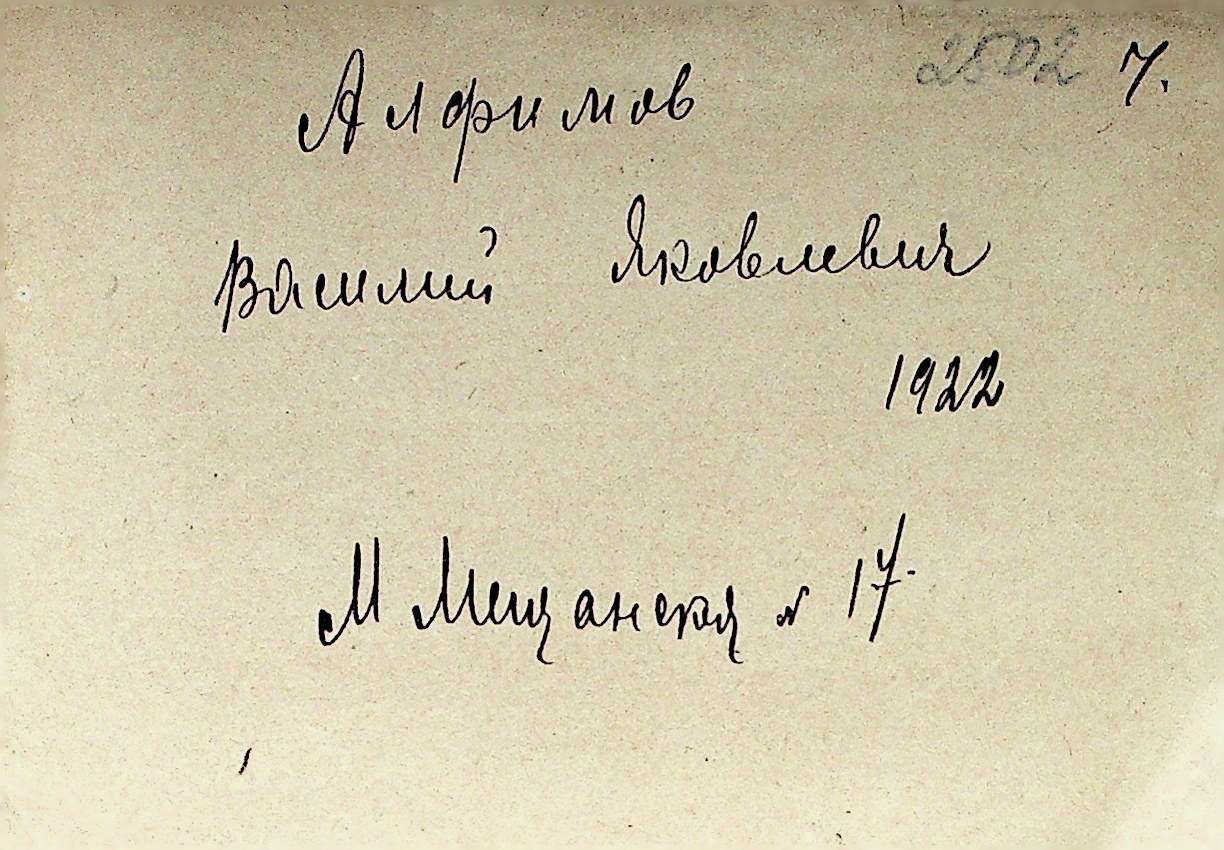 2502 7.
Алфимов
Василий Яковлевич
1922
М Мещанская № 17